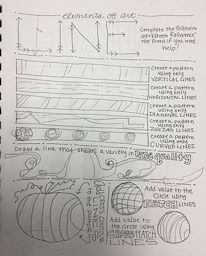 elements of art
Complete the following
worksheet. Reference
the front if you need
help!
Create a pattern
using only
VERTICAL LINES
Create a pattern
using only
HORIZONTAL LINES
Create a pattern
using only
DIAGONAL LINES
Create a pattern
using only
ZIGZAG LINES
Create a pattern
using only
CURVED LINES
Draw a line that shows a variety in line quality
Add value to
the circle using
LINES
Add value to
the circle using
CROSSHATCH
LINES